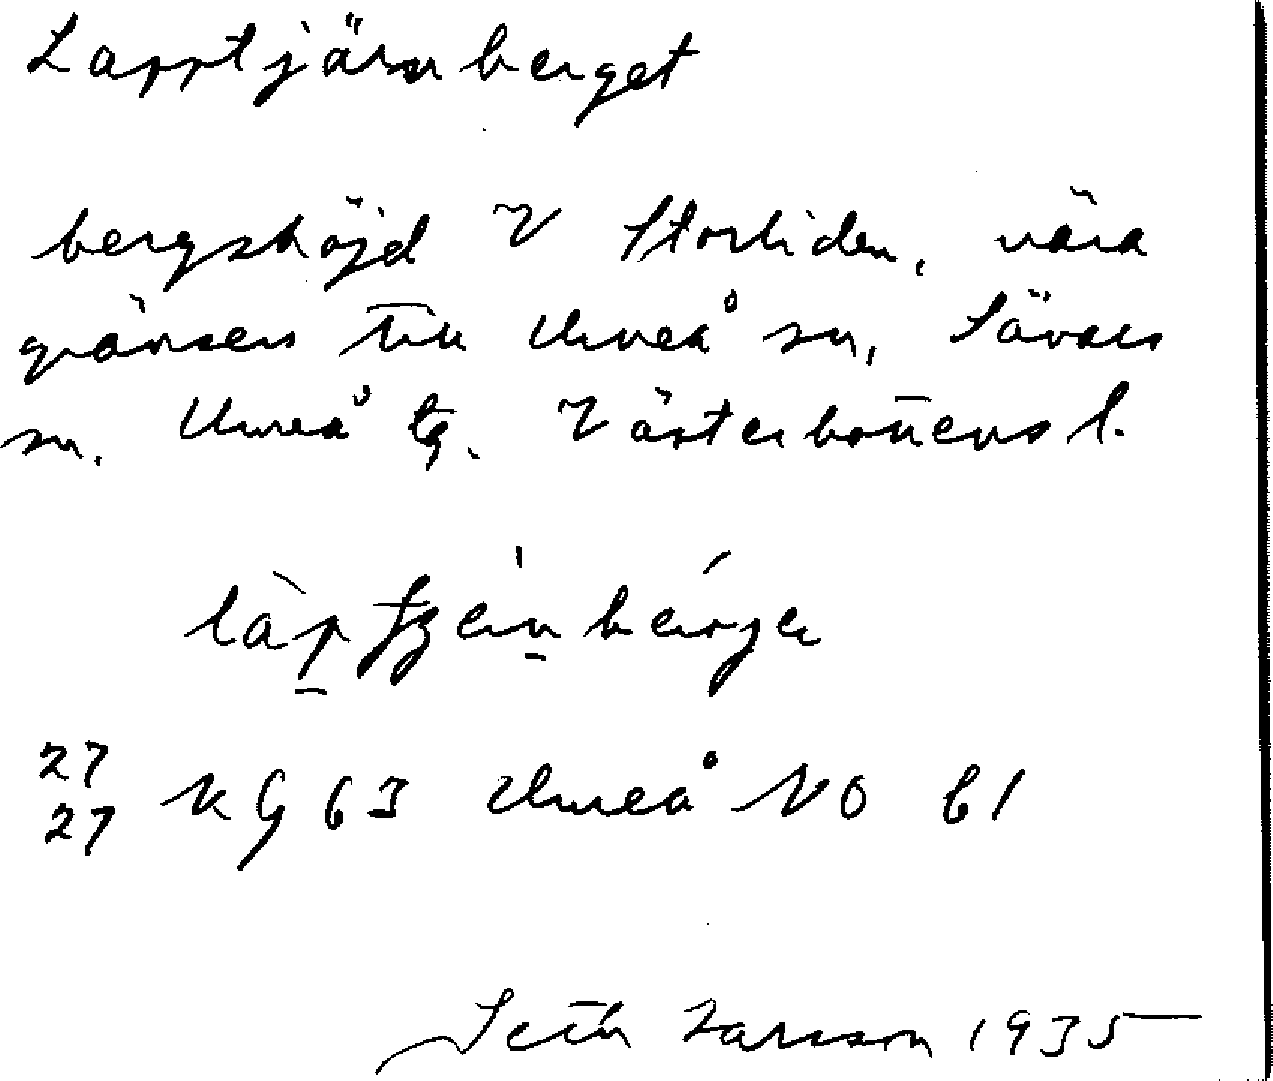 Lapptjärnberget
bergshöjd V Storliden, nära
gränsen till Umeå sn, Sävars
sn. Umeå tg. Västerbottens l.
27 KG 63 Umeå NO b1
27
Seth Larsson 1935